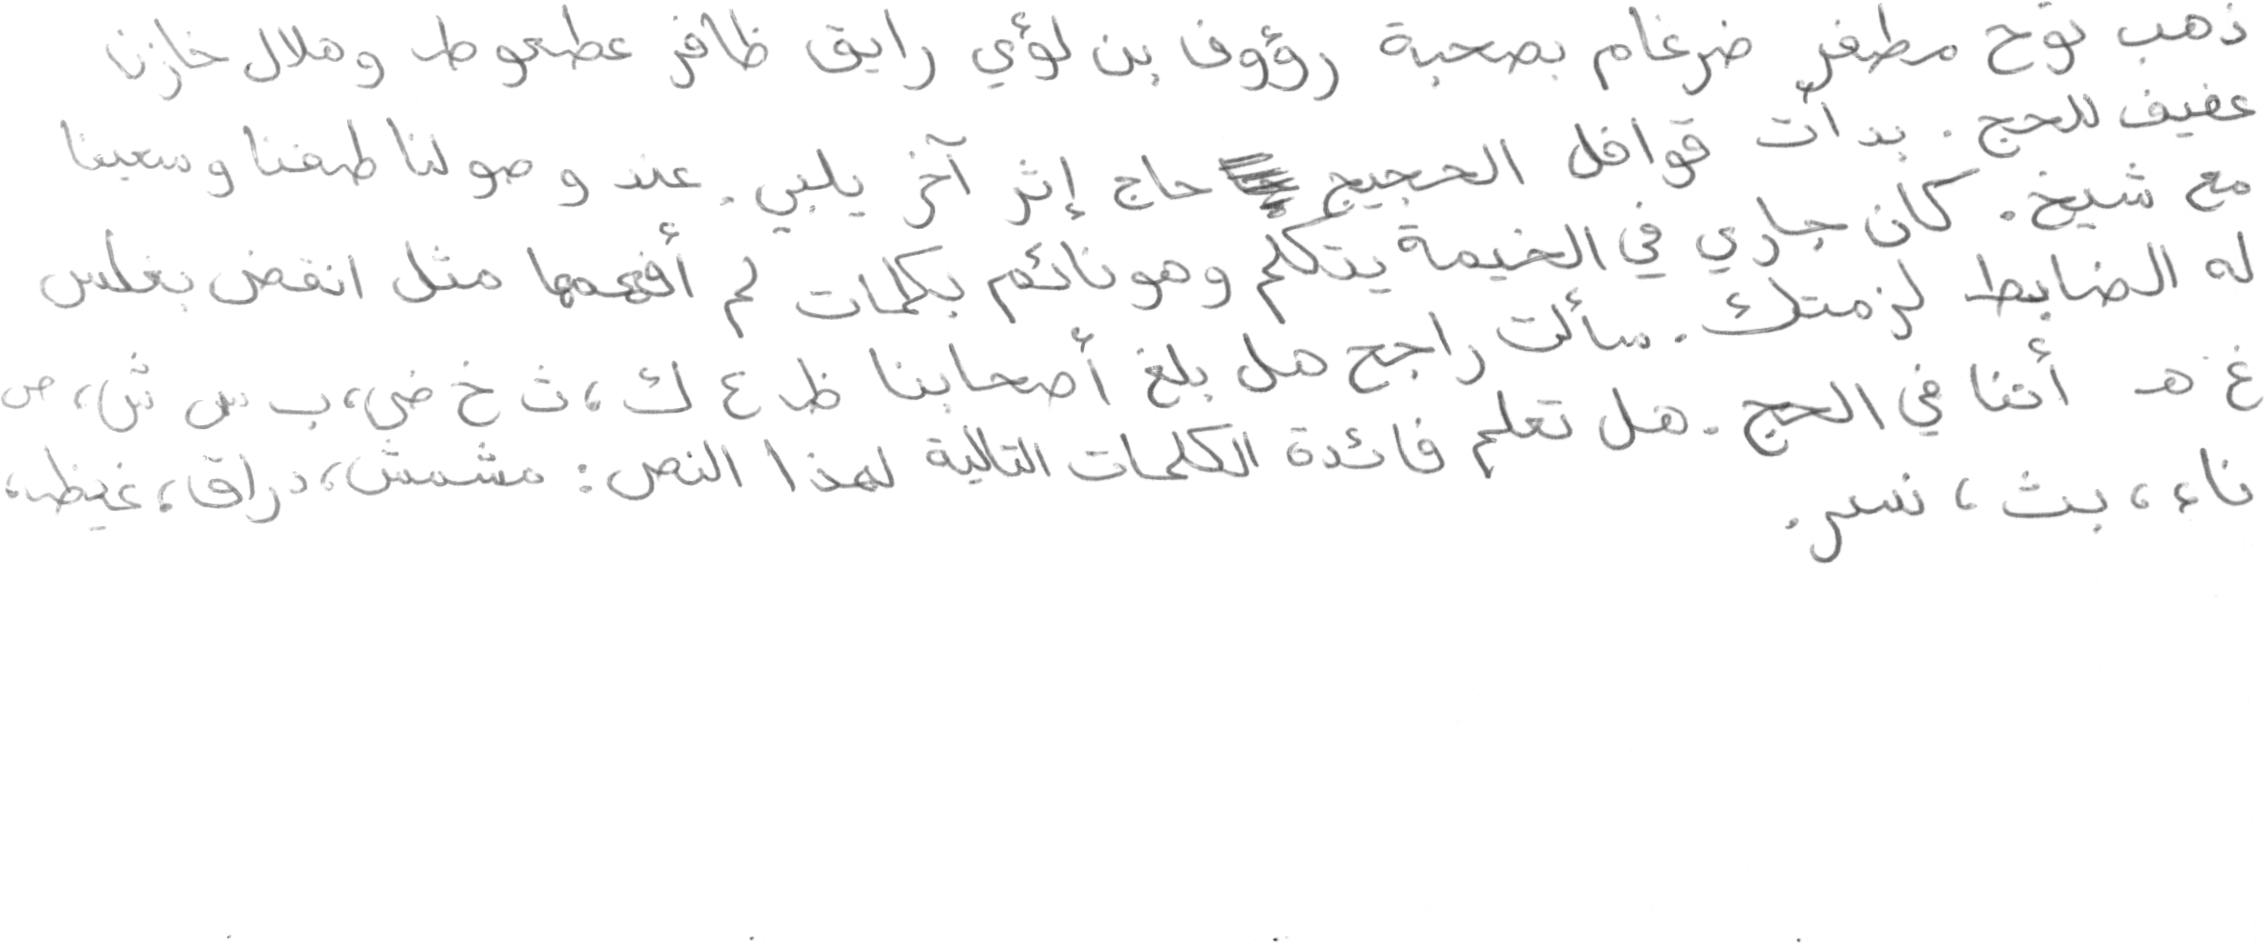 ذهب نوح مظفر ضرغام بصحبة رؤوف بن لؤي رايق ظافر عطعوط وهلال خازن
عفيف للحج. بدأت قوافل الحجيج حاج إثر آخر يلبي. عند وصولنا طفنا وسعينا
مع شيخ. كان جاري في الخيمة يتكلم وهو نائم بكلمات لم أفهمها مثل انقض بغلس
له الضابط لزمتك. سألت راجح هل بلغ أصحابنا ظ ع ك، ث خ ض، ب س ش، ص
غ هـ أثنا في الحج. هل تعلم فائدة الكلمات التالية لهذا النص: مشمش، دراق، غيظ،
ناء، بث، نسر.